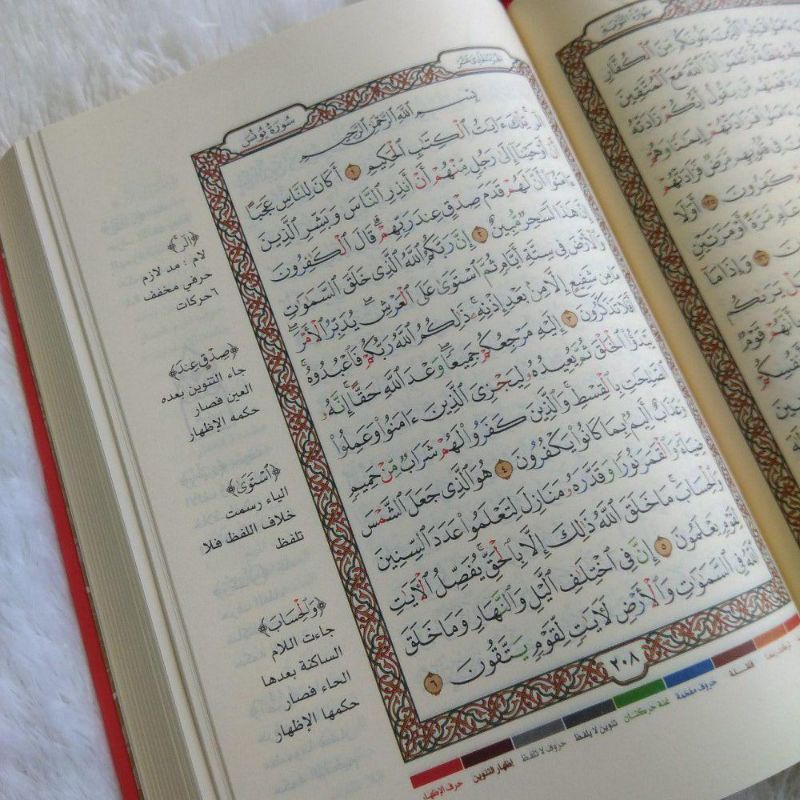 سُورَةُ يُونُسَ
بِسْمِ ٱللَّهِ ٱلرَّحْمَٰنِ ٱلرَّحِيمِ
الٓر تِلْكَ ءَايَٰتُ ٱلْكِتَٰبِ ٱلْحَكِيمِ ١ أَكَانَ لِلنَّاسِ عَجَبًا
أَوْحَيْنَآ إِلَىٰ رَجُلٍ مِّنْهُمْ أَنْ أَنذِرِ ٱلنَّاسَ وَبَشِّرِ ٱلَّذِينَ
أَنَّ لَهُمْ قَدَمَ صِدْقٍ عِندَ رَبِّهِمْ ۗ قَالَ ٱلْكَٰفِرُونَ
إِنَّ هَٰذَا لَسَٰحِرٌ مُّبِينٌ ٢ إِنَّ رَبَّكُمُ ٱللَّهُ ٱلَّذِى خَلَقَ ٱلسَّمَٰوَٰتِ
وَٱلْأَرْضَ فِى سِتَّةِ أَيَّامٍ ثُمَّ ٱسْتَوَىٰ عَلَى ٱلْعَرْشِ ۖ يُدَبِّرُ ٱلْأَمْرَ ۖ
مَا مِن شَفِيعٍ إِلَّا مِنۢ بَعْدِ إِذْنِهِۦ ۚ ذَٰلِكُمُ ٱللَّهُ رَبُّكُمْ فَٱعْبُدُوهُ ۚ
أَفَلَا تَذَكَّرُونَ ٣ إِلَيْهِ مَرْجِعُكُمْ جَمِيعًا ۖ وَعْدَ ٱللَّهِ حَقًّا ۚ إِنَّهُۥ
يَبْدَؤُا۟ ٱلْخَلْقَ ثُمَّ يُعِيدُهُۥ لِيَجْزِىَ ٱلَّذِينَ ءَامَنُوا۟ وَعَمِلُوا۟
ٱلصَّٰلِحَٰتِ بِٱلْقِسْطِ ۚ وَٱلَّذِينَ كَفَرُوا۟ لَهُمْ شَرَابٌ مِّنْ حَمِيمٍ
وَعَذَابٌ أَلِيمٌۢ بِمَا كَانُوا۟ يَكْفُرُونَ ٤ هُوَ ٱلَّذِى جَعَلَ ٱلشَّمْسَ
ضِيَآءً وَٱلْقَمَرَ نُورًا وَقَدَّرَهُۥ مَنَازِلَ لِتَعْلَمُوا۟ عَدَدَ ٱلسِّنِينَ
وَٱلْحِسَابَ ۚ مَا خَلَقَ ٱللَّهُ ذَٰلِكَ إِلَّا بِٱلْحَقِّ ۚ يُفَصِّلُ ٱلْءَايَٰتِ
لِقَوْمٍ يَعْلَمُونَ ٥ إِنَّ فِى ٱخْتِلَٰفِ ٱلَّيْلِ وَٱلنَّهَارِ وَمَا خَلَقَ
ٱللَّهُ فِى ٱلسَّمَٰوَٰتِ وَٱلْأَرْضِ لَءَايَٰتٍ لِّقَوْمٍ يَتَّقُونَ ٦
٢٠٨
﴿الٓر﴾
لام : مد لازم
حرفي مخفف
٦ حركات
﴿صِدْقٍ عِندَ﴾
جاء التنوين بعده
العين فصار
حكمه الإظهار
﴿ٱسْتَوَىٰ﴾
الياء رسمت
خلاف اللفظ فلا
تلفظ
﴿وَٱلْحِسَابَ﴾
جاءت اللام
الساكنة بعدها
الحاء فصار
حكمها الإظهار
حرف الإظهار
إظهار التنوين
حروف لا تلفظ
تنوين لا يلفظ
غنة حركتان
حروف مفخمة
القلقلة
سُورَةُ التَّوْبَةِ
ٱلْكُفَّارِ
مَعَ ٱلْمُتَّقِينَ
يَقُولُ أَيُّكُمْ زَادَتْهُ
إِيمَٰنًا وَهُمْ
مَّرَضٌ فَزَادَتْهُمْ
كَٰفِرُونَ ١٢٥ أَوَلَا
عَامٍ مَّرَّةً أَوْ مَرَّتَيْنِ
وَإِذَا مَآ